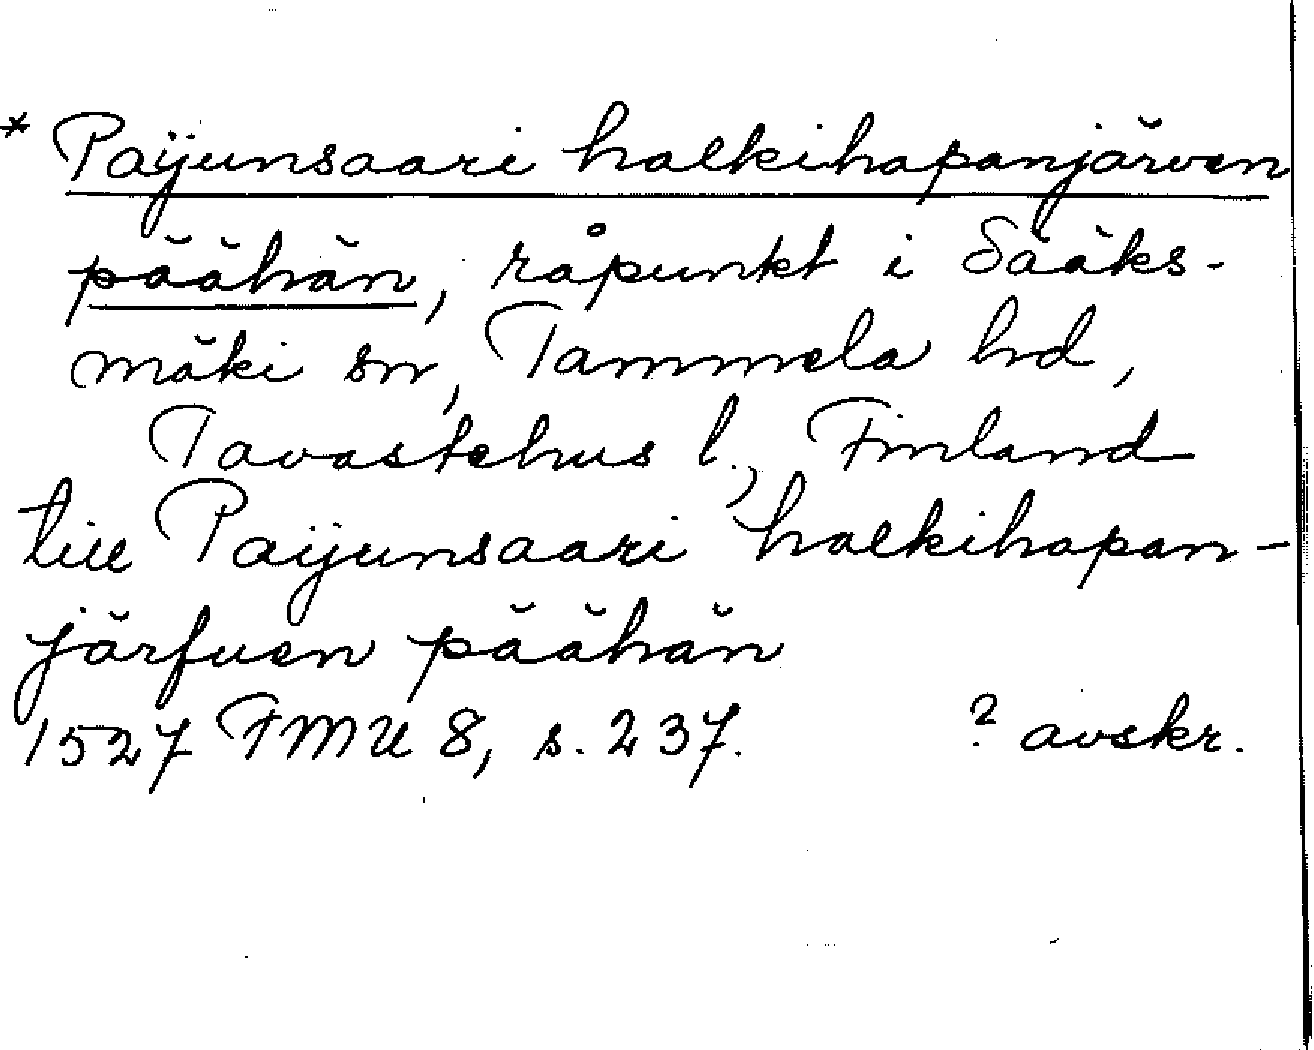 * Paijunsaari halkihapanjärven
päähän, råpunkt i Sääks-
mäki sn, Tammela hd,
Tavastehus l., Finland
till Paijunsaari halkihapan-
järfuen päähän
1527 FMU 8, s. 237. ? avskr.